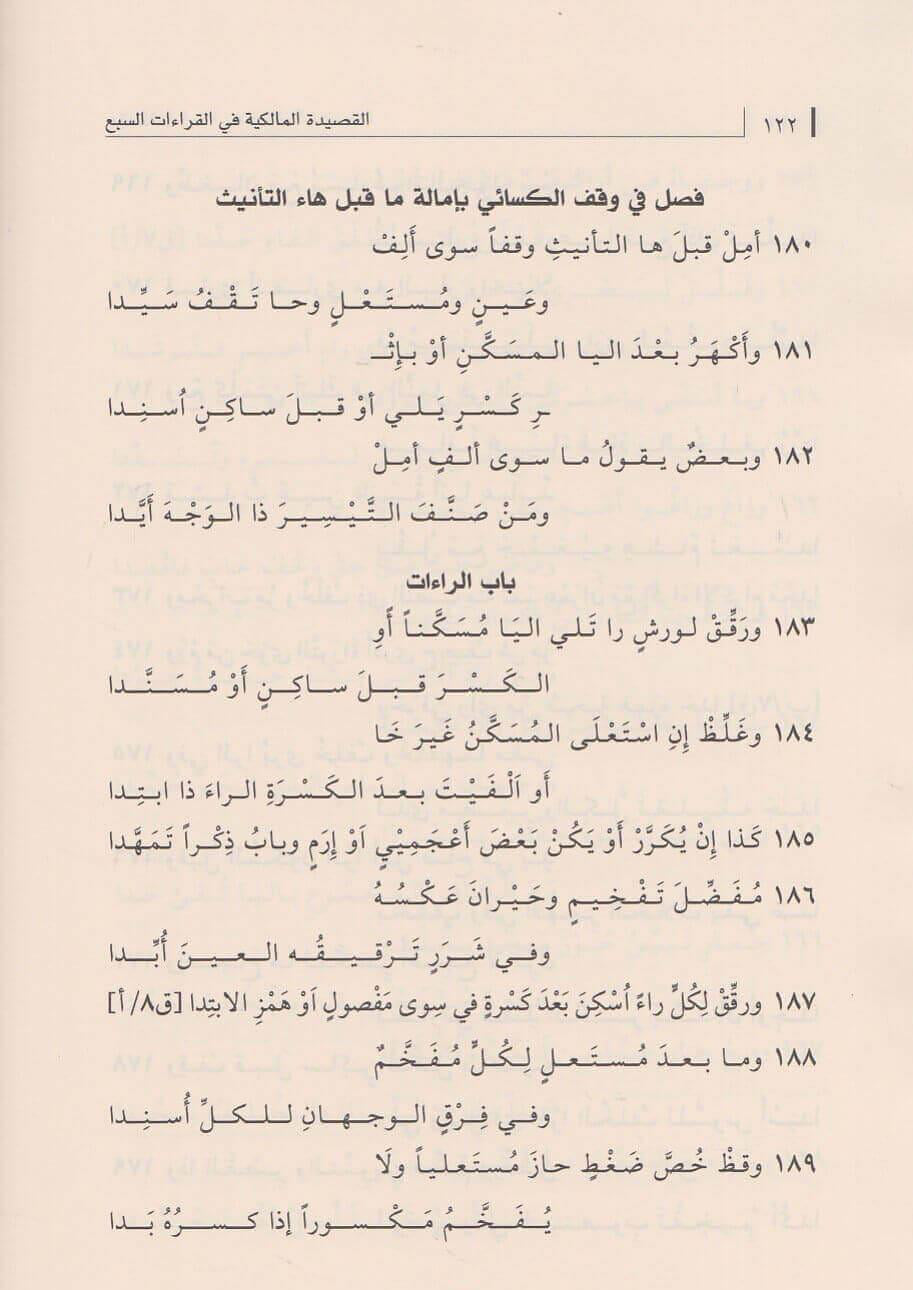 ١٢٢ القصيدة المالكية في القراءات السبع
فصل في وقف الكسائي بإمالة ما قبل هاء التأنيث
١٨٠ أمِلْ قبلَ ها التأنيثِ وقفاً سوى أَلِفْ
وعَينٍ ومُستَعْلٍ وحا تَقْفُ سَيِّدا
١٨١ وأَكْهَرُ بعْدَ اليا المسَكَّنِ أوْ بإِثْـ
ـرِ كَسْرٍ يَلي أوْ قبلَ ساكِنٍ اُسنِدا
١٨٢ وبعضٌ يقولُ ما سوى ألفٍ أمِلْ
ومَنْ صَنَّفَ التَّيْسِيرَ ذا الوَجْهَ أَيَّدا
باب الراءات
١٨٣ ورَقِّقْ لورشٍ را تَلي اليَا مُسَكَّناً أَوِ
الكَسْرَ قبلَ ساكِنٍ أَوْ مُسَنَّدا
١٨٤ وغَلِّظْ إنِ اسْتَعْلَى المُسَكَّنُ غَيرَ خَا
أَو اَلْفَيْتَ بعدَ الكَسْرَةِ الراءَ ذا ابتِدا
١٨٥ كَذا إنْ يُكَرَّرْ أَوْ يَكُنْ بَعْضَ أعْجَمِيْيٍ اَوْ إرَمٍ وبابُ ذِكْراً تَمَهَّدا
١٨٦ مُفَضِّلَ تَفْخِيمٍ وحَيْرانَ عَكْسُهُ
وفي شَرَرٍ تَرْقيقُه العينَ أُبِّدا
١٨٧ ورقِّقْ لِكُلٍّ راءً اُسْكِنَ بَعْدَ كَسْرةٍ في سِوى مَفْصولٍ اَوْ هَمْزِ الابتِدا [ق٨/ أ]
١٨٨ وما بعدَ مُستَعلٍ لِكُلٍّ مُفَخَّمٌ
وفي فِرْقٍ الوجهانِ للكلِّ أُسنِدا
١٨٩ وقظْ خُصَّ ضَغْطٍ حازَ مُستَعلياً ولَا
يُفَخَّمُ مَكْسوراً إذا كسرُهُ بَدا